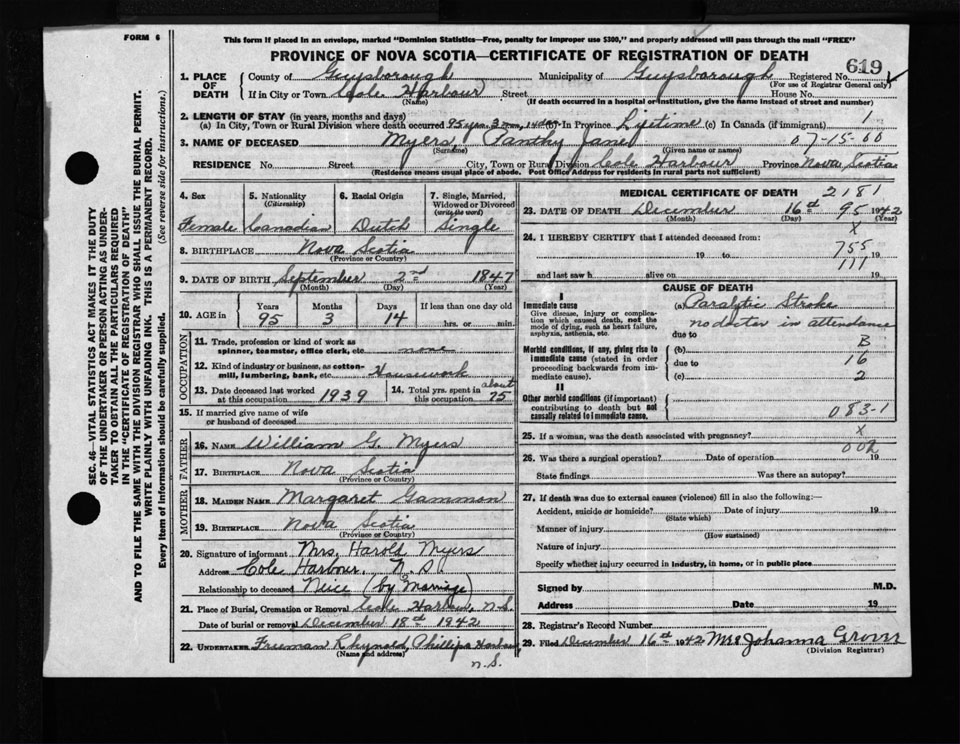 FORM 6
This form if placed in an envelope, marked "Dominion Statistics—Free, penalty for improper use $300," and properly addressed will pass through the mail "FREE"
PROVINCE OF NOVA SCOTIA—CERTIFICATE OF REGISTRATION OF DEATH
619
1. PLACE OF DEATH County of Guysborough Municipality of Guysborough Registered No.
(For use of Registrar General only)
If in City or Town Cole Harbour Street House No.
(Name) (If death occurred in a hospital or institution, give the name instead of street and number)
2. LENGTH OF STAY (in years, months and days)
(a) In City, Town or Rural Division where death occurred 95 yrs. 3 mos. 14 days (b) In Province Lifetime (c) In Canada (if immigrant) 1
3. NAME OF DECEASED Myers, Panthy Jane 07-15-00
(Surname) (Given name or names)
RESIDENCE No. Street City, Town or Rural Division Cole Harbour Province Nova Scotia
(Residence means usual place of abode. Post Office Address for residents in rural parts not sufficient)
4. Sex 5. Nationality (Citizenship) 6. Racial Origin 7. Single, Married, Widowed or Divorced (write the word)
Female Canadian Dutch Single
8. BIRTHPLACE Nova Scotia
(Province or Country)
9. DATE OF BIRTH September 2nd 1847
(Month) (Day) (Year)
10. AGE in Years Months Days If less than one day old
95 3 14 hrs. or min.
OCCUPATION
11. Trade, profession or kind of work as spinner, teamster, office clerk, etc none
12. Kind of industry or business, as cotton-mill, lumbering, bank, etc. Housework
13. Date deceased last worked at this occupation 1939 14. Total yrs. spent in this occupation about 75
15. If married give name of wife or husband of deceased
FATHER
16. NAME William G. Myers
17. BIRTHPLACE Nova Scotia
(Province or Country)
MOTHER
18. MAIDEN NAME Margaret Gammon
19. BIRTHPLACE Nova Scotia
(Province or Country)
20. Signature of informant Mrs. Harold Myers
Address Cole Harbour. N.S.
Relationship to deceased Neice (by Marriage)
21. Place of Burial, Cremation or Removal Cole Harbour, N.S.
Date of burial or removal December 18th 1942
22. UNDERTAKER Freeman Rhynold, Phillips Harbour,
(Name and address)
N.S.
MEDICAL CERTIFICATE OF DEATH 2181
23. DATE OF DEATH December 16th 95 1942
(Month) (Day) (Year)
X
24. I HEREBY CERTIFY that I attended deceased from:
19 to 755 19
111
and last saw h alive on 19
CAUSE OF DEATH
I
Immediate cause (a) Paralytic Stroke
Give disease, injury or complication which caused death, not the mode of dying, such as heart failure, asphyxia, asthenia, etc.
no doctor in attendance
due to B
Morbid conditions, if any, giving rise to immediate cause (stated in order proceeding backwards from immediate cause).
(b)
due to 16
(c) 2
II
Other morbid conditions (if important) contributing to death but not causally related to immediate cause.
083-1
25. If a woman, was the death associated with pregnancy? X
26. Was there a surgical operation? Date of operation 19
State findings Was there an autopsy?
27. If death was due to external causes (violence) fill in also the following:—
Accident, suicide or homicide? Date of injury 19
(State which)
Manner of injury
(How sustained)
Nature of injury
Specify whether injury occurred in industry, in home, or in public place
Signed by M.D.
Address Date 19
28. Registrar's Record Number
29. Filed December 16th 1942 Mrs Johanna Grover
(Division Registrar)
SEC. 46—VITAL STATISTICS ACT MAKES IT THE DUTY
OF THE UNDERTAKER OR PERSON ACTING AS UNDER-
TAKER TO OBTAIN ALL THE PARTICULARS REQUIRED
IN THE "CERTIFICATE OF REGISTRATION OF DEATH"
AND TO FILE THE SAME WITH THE DIVISION REGISTRAR WHO SHALL ISSUE THE BURIAL PERMIT.
WRITE PLAINLY WITH UNFADING INK. THIS IS A PERMANENT RECORD.
Every item of information should be carefully supplied. (See reverse side for instructions.)